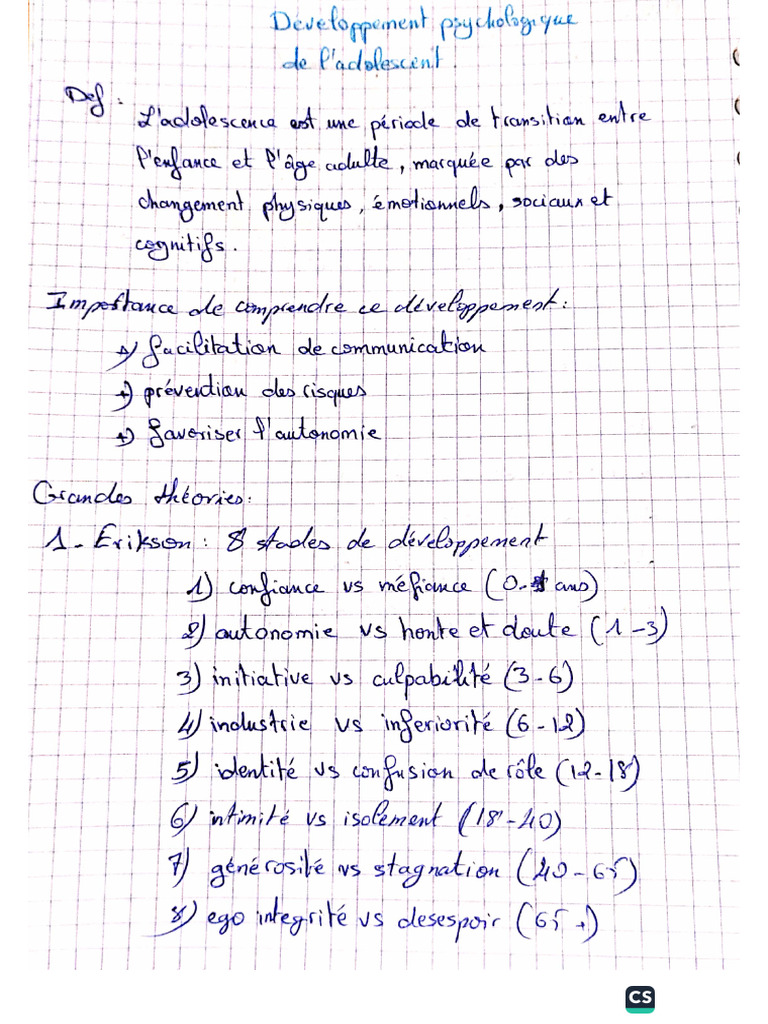 Développement psychologique
de l'adolescent.
Def :
L'adolescence est une période de transition entre
l'enfance et l'âge adulte, marquée par des
changement physiques, émotionnels, sociaux et
cognitifs.
Importance de comprendre ce développement :
+) facilitation de communication
+) prévention des risques
+) favoriser l'autonomie
Grandes théories :
1 - Erikson : 8 stades de développement
1) confiance vs méfiance (0-1 ans)
2) autonomie vs honte et doute (1-3)
3) initiative vs culpabilité (3-6)
4) industrie vs inferiorité (6-12)
5) identité vs confusion de rôle (12-18)
6) intimité vs isolement (18-40)
7) générosité vs stagnation (40-65)
8) ego integrité vs desespoir (65+)
CS